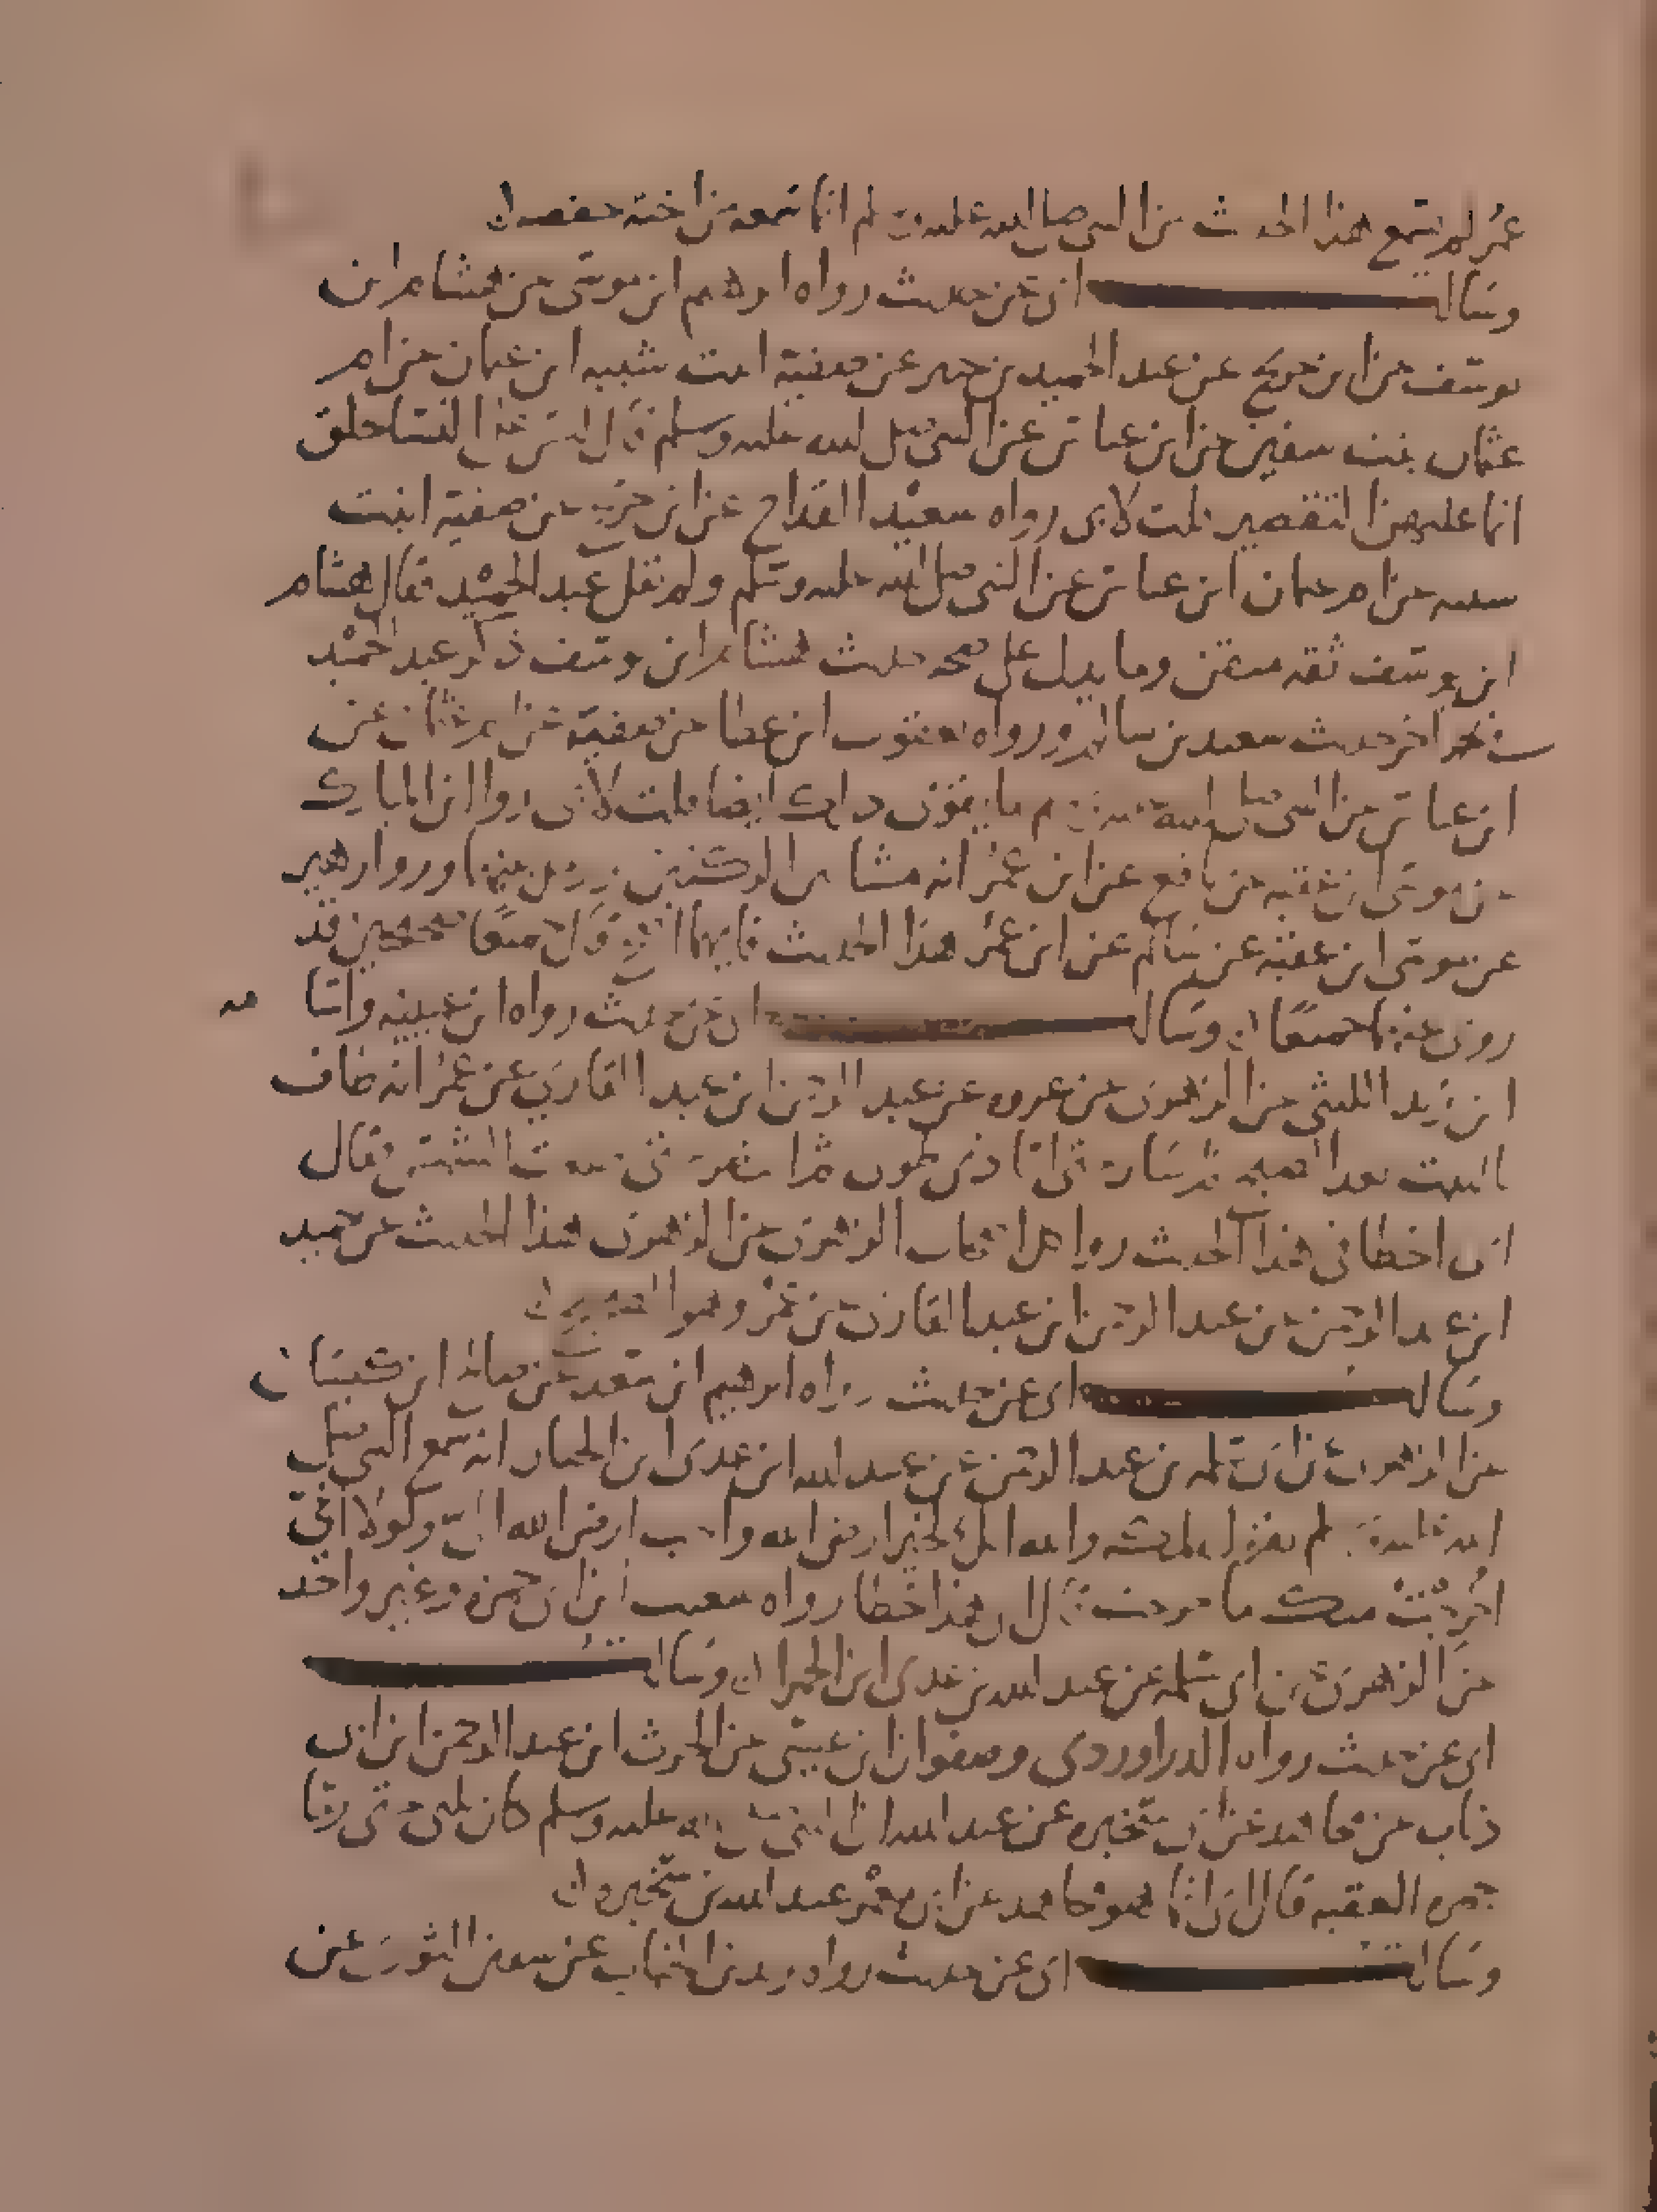 عمر لم يسمع هذا الحديث من النبي صلى الله عليه وسلم انما سمعه من اخته حفصه
وسالت ابي عن حديث رواه ابرهيم ابن موسى عن هشام ابن
يوسف عن ابن جريج عن عبد الحميد بن جبير عن صفية ابنت شيبه ابن عثمان عن ام
عثمان بنت سفين عن ابن عباس عن النبي صلى الله عليه وسلم قال ليس على النسا حلق
انما عليهن التقصير قلت لابي رواه سعيد القداح عن ابن جريج عن صفية ابنت
شيبه عن ام عثمان ابن عباس عن النبي صلى الله عليه وسلم ولم يقل عبد الحميد فقال هشام
ابن يوسف ثقه متقن وما يدل على صحه حديث هشام ابن يوسف ذكر عبد الحميد
اخر حديث سعيد بن سالم ورواه يعقوب ابن عطا عن صفية عن ام عثمان عن
ابن عباس عن النبي صلى الله عليه وسلم ما يقوي ذلك ايضا قلت لابي روا ابن المبارك
عن موسى ابن عقبه عن نافع عن ابن عمر انه مشا الى الركنين وروا زهير
عن موسى ابن عقبه عن سالم عن ابن عمر هذا الحديث فايهما اصح قال جميعا صحيحين قد
روي عنهما جميعا وسالت ابي عن حديث رواه ابن عيينه واسا مه
ابن زيد الليثي عن الزهري عن عروه عن عبد الرحمن ابن عبد القاري عن عمر انه طاف
بالبيت بعد الصبح ثم سار حتى اتا ذي طوى ثم حتى الشمس فقال
ابي اخطا في هذا الحديث روا هل اصحاب الزهري عن الزهري هذا الحديث عن حميد
ابن عبد الرحمن عن عبد الرحمن ابن عبد القاري عن عمر وهوا الصحيح
وسالت ابي عن حديث رواه ابرهيم ابن سعد عن صالح ابن كيسان
عن الزهري عن ابي سلمه بن عبد الرحمن عن عبيد الله ابن عدي ابن الخيار انه سمع النبي صلى
الله عليه وسلم يقول لمكة والله انك لخير ارض الله واحب ارض الله الي ولولا اني
اخرجت منك ما خرجت قال ابي هذا خطا رواه شعيب ابن ابي حمزه وغير واحد
عن الزهري عن ابي سلمه عن عبد الله بن عدي ابن الحمرا وسالت
ابي عن حديث رواه الدراوردي وصفوان ابن عيسى عن الحرث ابن عبد الرحمن ابن ابي
ذباب عن مجاهد عن ابي سخبره عن عبد الله ان النبي صلى الله عليه وسلم كان يلبي حتى رما
جمره العقبه قال ابي انما هو مجاهد عن ابي معمر عبد الله بن سخبره
وسالت ابي عن حديث رواه زيد بن الحباب عن سفين الثوري عن